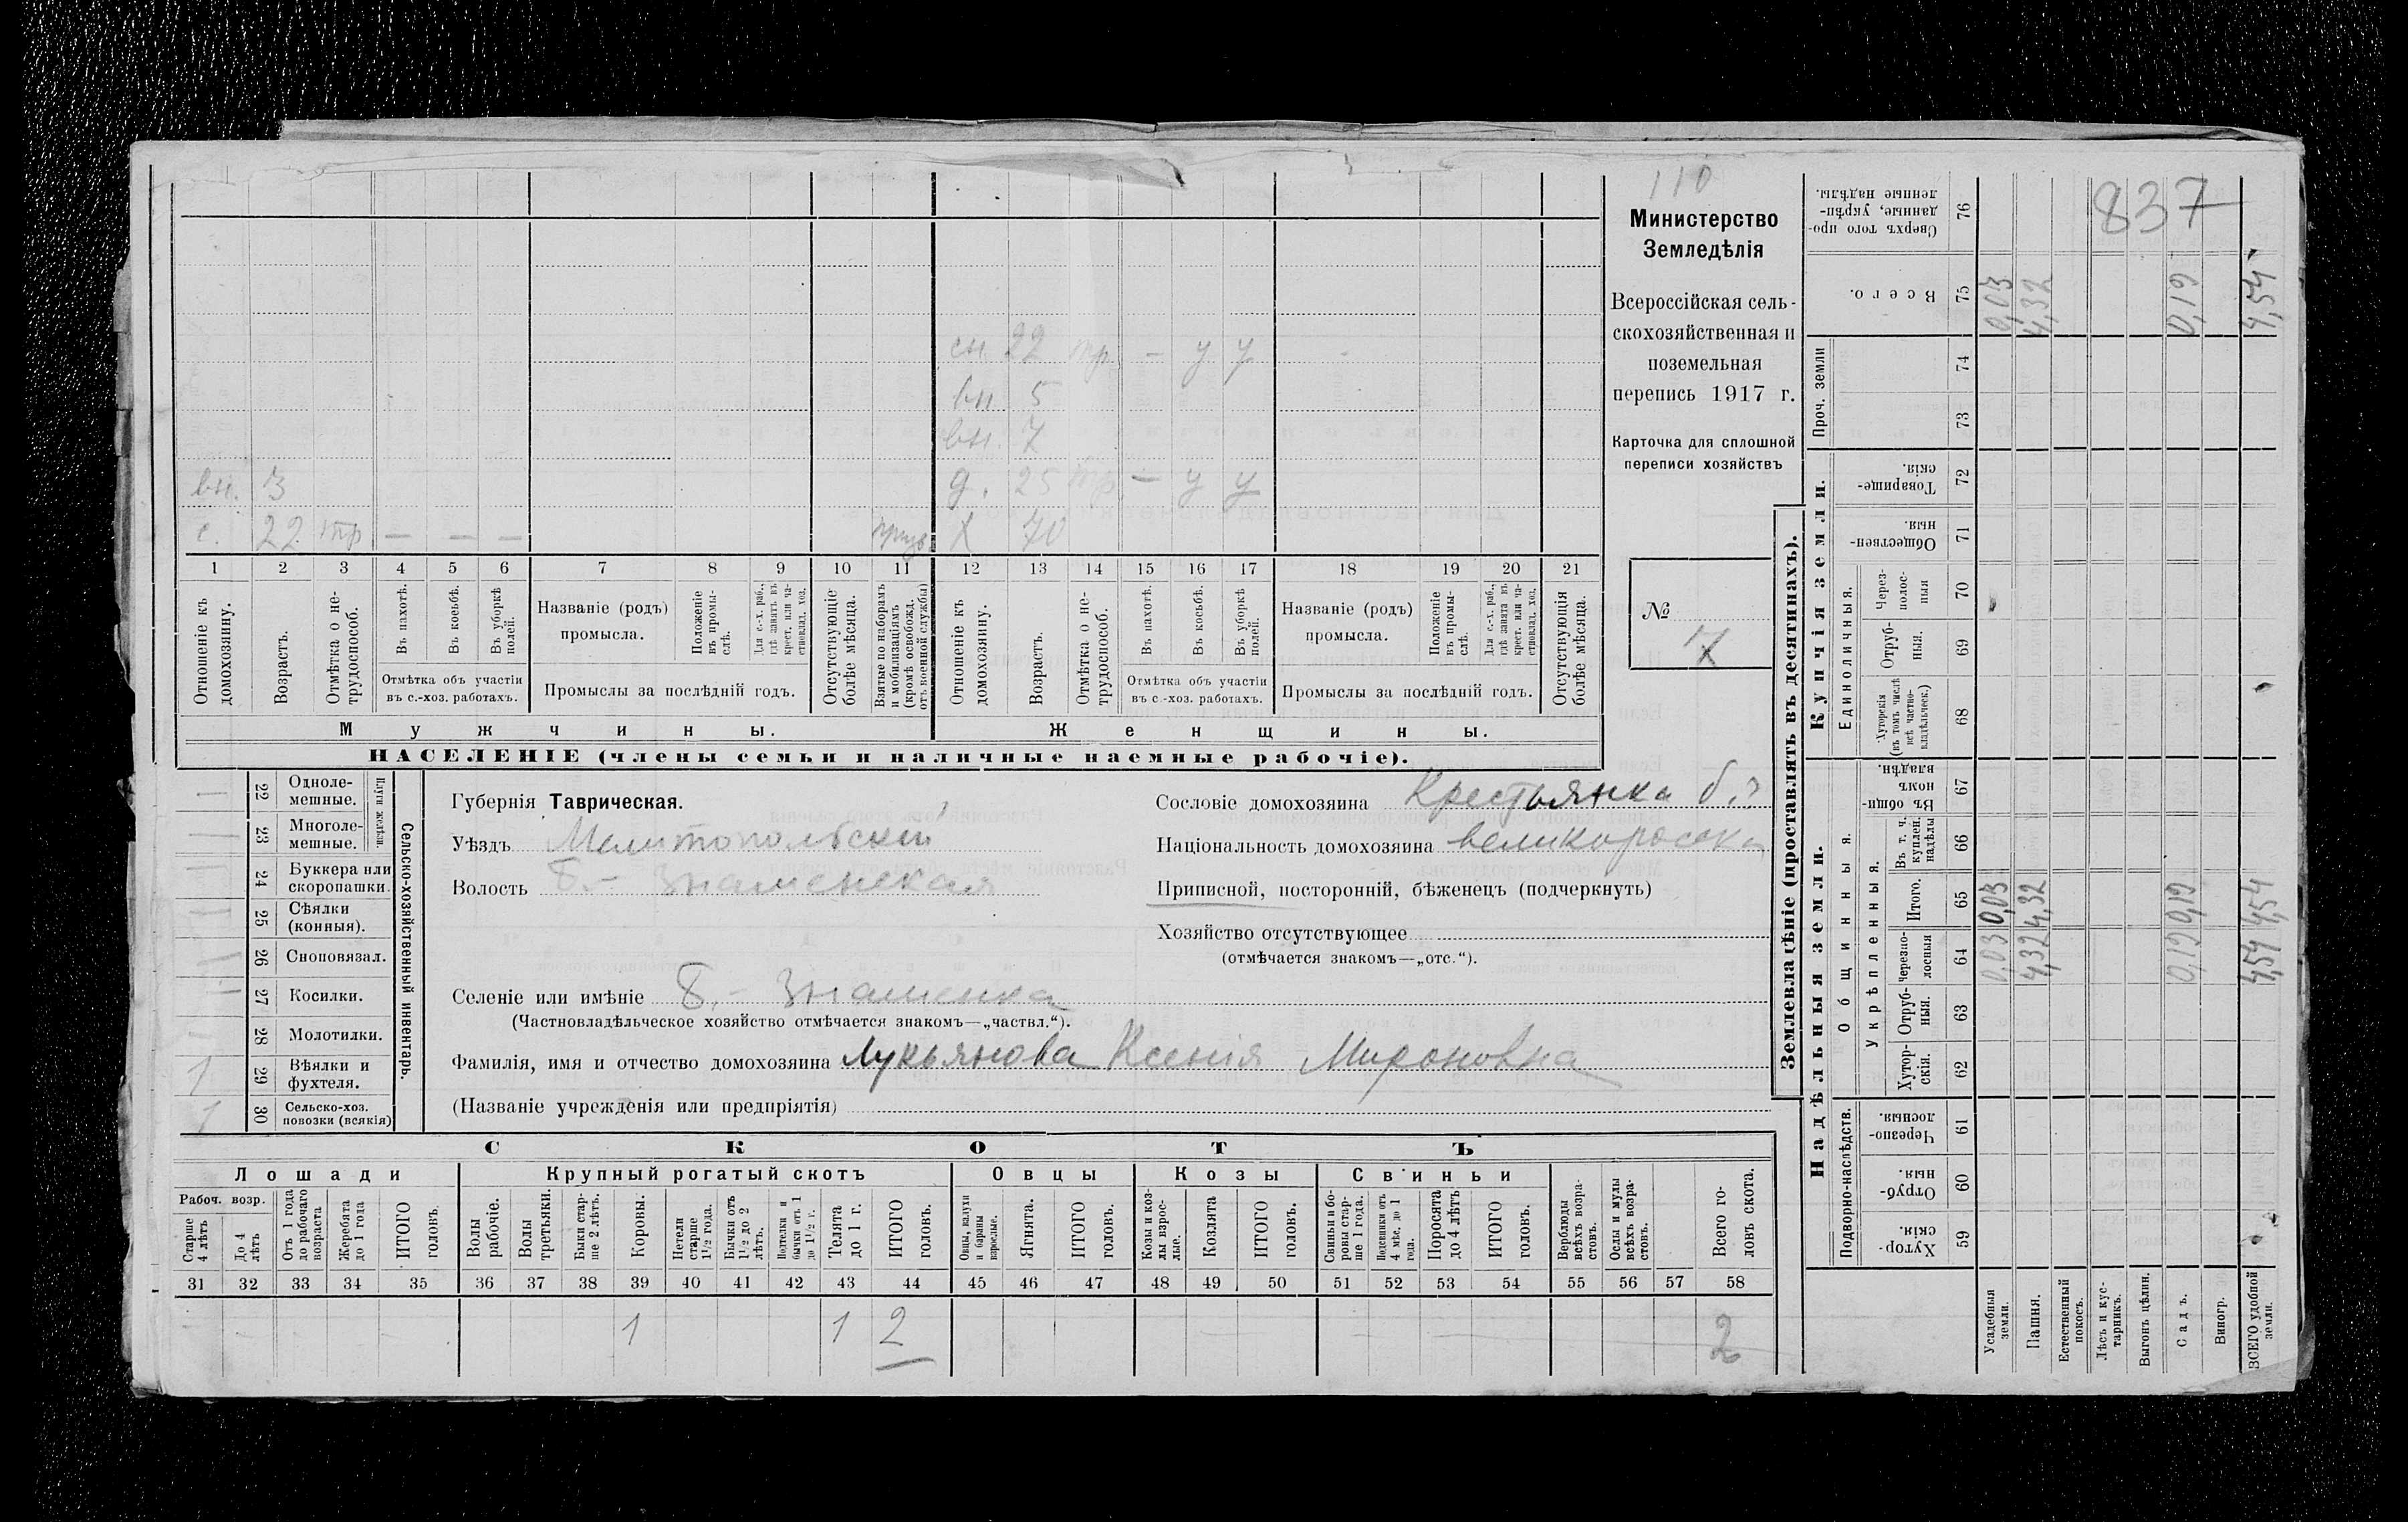 110
837
Министерство
Земледѣлія
Всероссійская сель-
скохозяйственная и
поземельная
перепись 1917 г.
Карточка для сплошной
переписи хозяйствъ
№
сн. 22 тр. – у у
вн. 5
вн. 7
вн. 3
д. 25 тр – у у
с. 22 тр. – – –
призв.
Х 70
1 2 3 4 5 6 7 8 9 10 11 12 13 14 15 16 17 18 19 20 21
Отношеніе къ домохозяину.
Возрастъ.
Отмѣтка о не-трудоспособ.
Въ пахотѣ.
Въ косьбѣ.
Въ уборкѣ полей.
Отмѣтка объ участіи
въ с.-хоз. работахъ.
Названіе (родъ)
промысла.
Положеніе въ промы-слѣ.
Для с.-х. раб., гдѣ занятъ въ крест. или ча-стновлад. хоз.
Промыслы за послѣдній годъ.
Отсутствующіе болѣе мѣсяца.
Взятые по наборамъ и мобилизаціямъ (кромѣ освобожд. отъ военной службы)
Отношеніе къ домохозяину.
Возрастъ.
Отмѣтка о не-трудоспособ.
Въ пахотѣ.
Въ косьбѣ.
Въ уборкѣ полей.
Отмѣтка объ участіи
въ с.-хоз. работахъ.
Названіе (родъ)
промысла.
Положеніе въ промы-слѣ.
Для с.-х. раб., гдѣ занята въ крест. или ча-стновлад. хоз.
Промыслы за послѣдній годъ.
Отсутствующія болѣе мѣсяца.
Мужчины.
Женщины.
НАСЕЛЕНІЕ (члены семьи и наличные наемные рабочіе).
Сельско-хозяйственный инвентарь.
Плуги желѣзн.
22 Одноле-мешные.
23 Многоле-мешные.
24 Буккера или скоропашки.
25 Сѣялки (конныя).
26 Сноповязал.
27 Косилки.
28 Молотилки.
1 29 Вѣялки и фухтеля.
1 30 Сельско-хоз. повозки (всякія)
Губернія Таврическая.
Уѣздъ Мелитопольскій
Волость Б.- Знаменская
Селеніе или имѣніе Б.- Знаменка
(Частновладѣльческое хозяйство отмѣчается знакомъ—„частвл.“).
Фамилія, имя и отчество домохозяина Лукьянова Ксенія Мироновна
(Названіе учрежденія или предпріятія)
Сословіе домохозяина Крестьянка
Національность домохозяина великоросска
Приписной, посторонній, бѣженецъ (подчеркнуть)
Хозяйство отсутствующее
(отмѣчается знакомъ—„отс.“).
СКОТЪ
Лошади
Крупный рогатый скотъ
Овцы
Козы
Свиньи
Рабоч. возр.
Старше 4 лѣтъ
До 4 лѣтъ
Отъ 1 года до рабочаго возраста
Жеребята до 1 года
ИТОГО головъ.
Волы рабочіе.
Волы третьяки.
Быки стар-ше 2 лѣтъ.
Коровы.
Нетели старше 1½ года.
Бычки отъ 1½ до 2 лѣтъ.
Подтелки и бычки отъ 1 до 1½ г.
Телята до 1 г.
ИТОГО головъ.
Овцы, валухи и бараны взрослые.
Ягнята.
ИТОГО головъ.
Козы и коз-лы взрос-лые.
Козлята
ИТОГО головъ.
Свиньи и бо-ровы стар-ше 1 года.
Подсвинки отъ 4 мѣс. до 1 года.
Поросята до 4 лѣтъ
ИТОГО головъ.
Верблюды всѣхъ возра-стовъ.
Ослы и мулы всѣхъ возра-стовъ.
Всего го-ловъ скота.
31 32 33 34 35 36 37 38 39 40 41 42 43 44 45 46 47 48 49 50 51 52 53 54 55 56 57 58
1 1 2 2
Землевладѣніе (проставлять въ десятинахъ).
Купчія земли.
Надѣльныя земли.
Сверхъ того про-данные, укрѣп-ленные надѣлы. 76
Всего. 75 0,03 4,32 0,19 4,54
Проч. земли 74 73
Товарище-скія. 72
Обществен-ныя. 71
Единоличныя.
Через-полос-ныя 70
Отруб-ныя. 69
Хуторскія (въ томъ числѣ всѣ частно-владѣльческ.) 68
Общинныя.
Въ общин-номъ владѣн. 67
Укрѣпленныя.
Въ т. ч. куплен. надѣлы 66
Итого. 65 0,03 4,32 0,19 4,54
Черезпо-лосныя 64 0,03 4,32 0,19 4,54
Отруб-ныя. 63
Хутор-скія. 62
Подворно-наслѣдств.
Черезпо-лосныя. 61
Отруб-ныя. 60
Хутор-скія. 59
Усадебныя земли.
Пашня.
Естественный покосъ.
Лѣсъ и кус-тарникъ.
Выгонъ цѣлин.
Садъ.
Виногр.
ВСЕГО удобной земли.